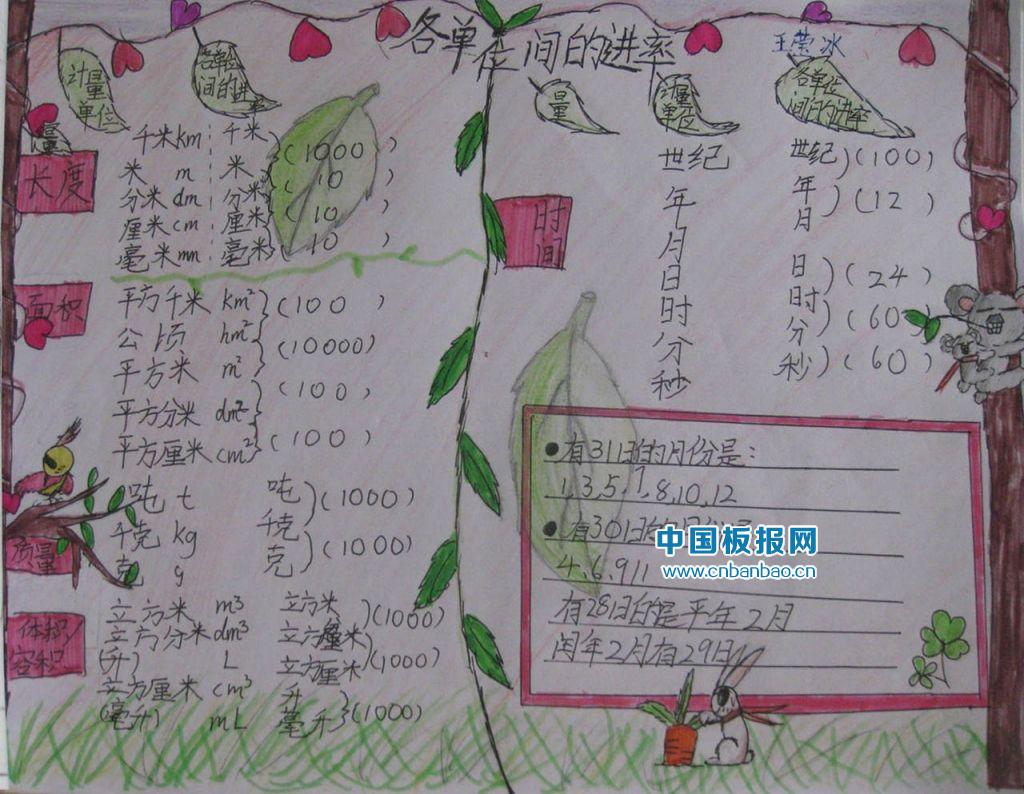 各单位间的进率
王莹冰
计量单位
各单位间的进率
量
长度
千米 km 千米
米 m 米 (1000)
分米 dm 分米 (10)
厘米 cm 厘米 (10)
毫米 mm 毫米 (10)
面积
平方千米 km² (100)
公顷 hm² (10000)
平方米 m² (100)
平方分米 dm² (100)
平方厘米 cm²
质量
吨 t 吨 (1000)
千克 kg 千克 (1000)
克 g 克
体积/容积
立方米 m³ 立方米 (1000)
立方分米 dm³
(升) L 立方厘米 (1000)
立方厘米 cm³ 升
(毫升) mL 毫升 (1000)
量
计量单位
各单位间的进率
时间
世纪 世纪 (100)
年 年 (12)
月 月
日 日 (24)
时 时 (60)
分 分 (60)
秒 秒
●有31日的月份是:
1,3,5,7,8,10,12
●有30日的月份是
4、6、9 11
有28日的是平年2月
闰年2月有29日
中国板报网
www.cnbanbao.cn